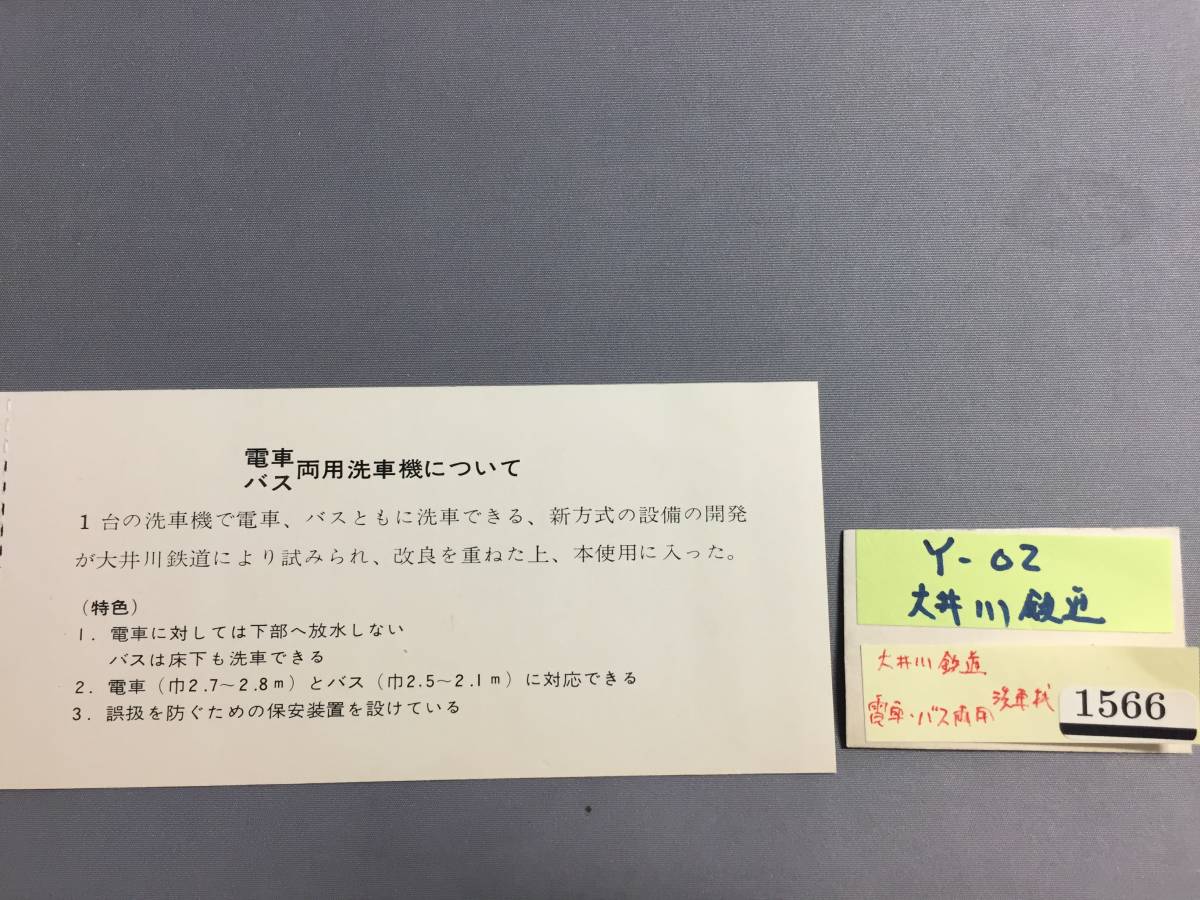 電車
バス両用洗車機について
1台の洗車機で電車、バスともに洗車できる、新方式の設備の開発
が大井川鉄道により試みられ、改良を重ねた上、本使用に入った。
(特色)
1. 電車に対しては下部へ放水しない
バスは床下も洗車できる
2. 電車(巾2.7〜2.8m)とバス(巾2.5〜2.1m)に対応できる
3. 誤扱を防ぐための保安装置を設けている
Y-02
大井川鉄道
大井川鉄道
電車・バス両用洗車機
1566